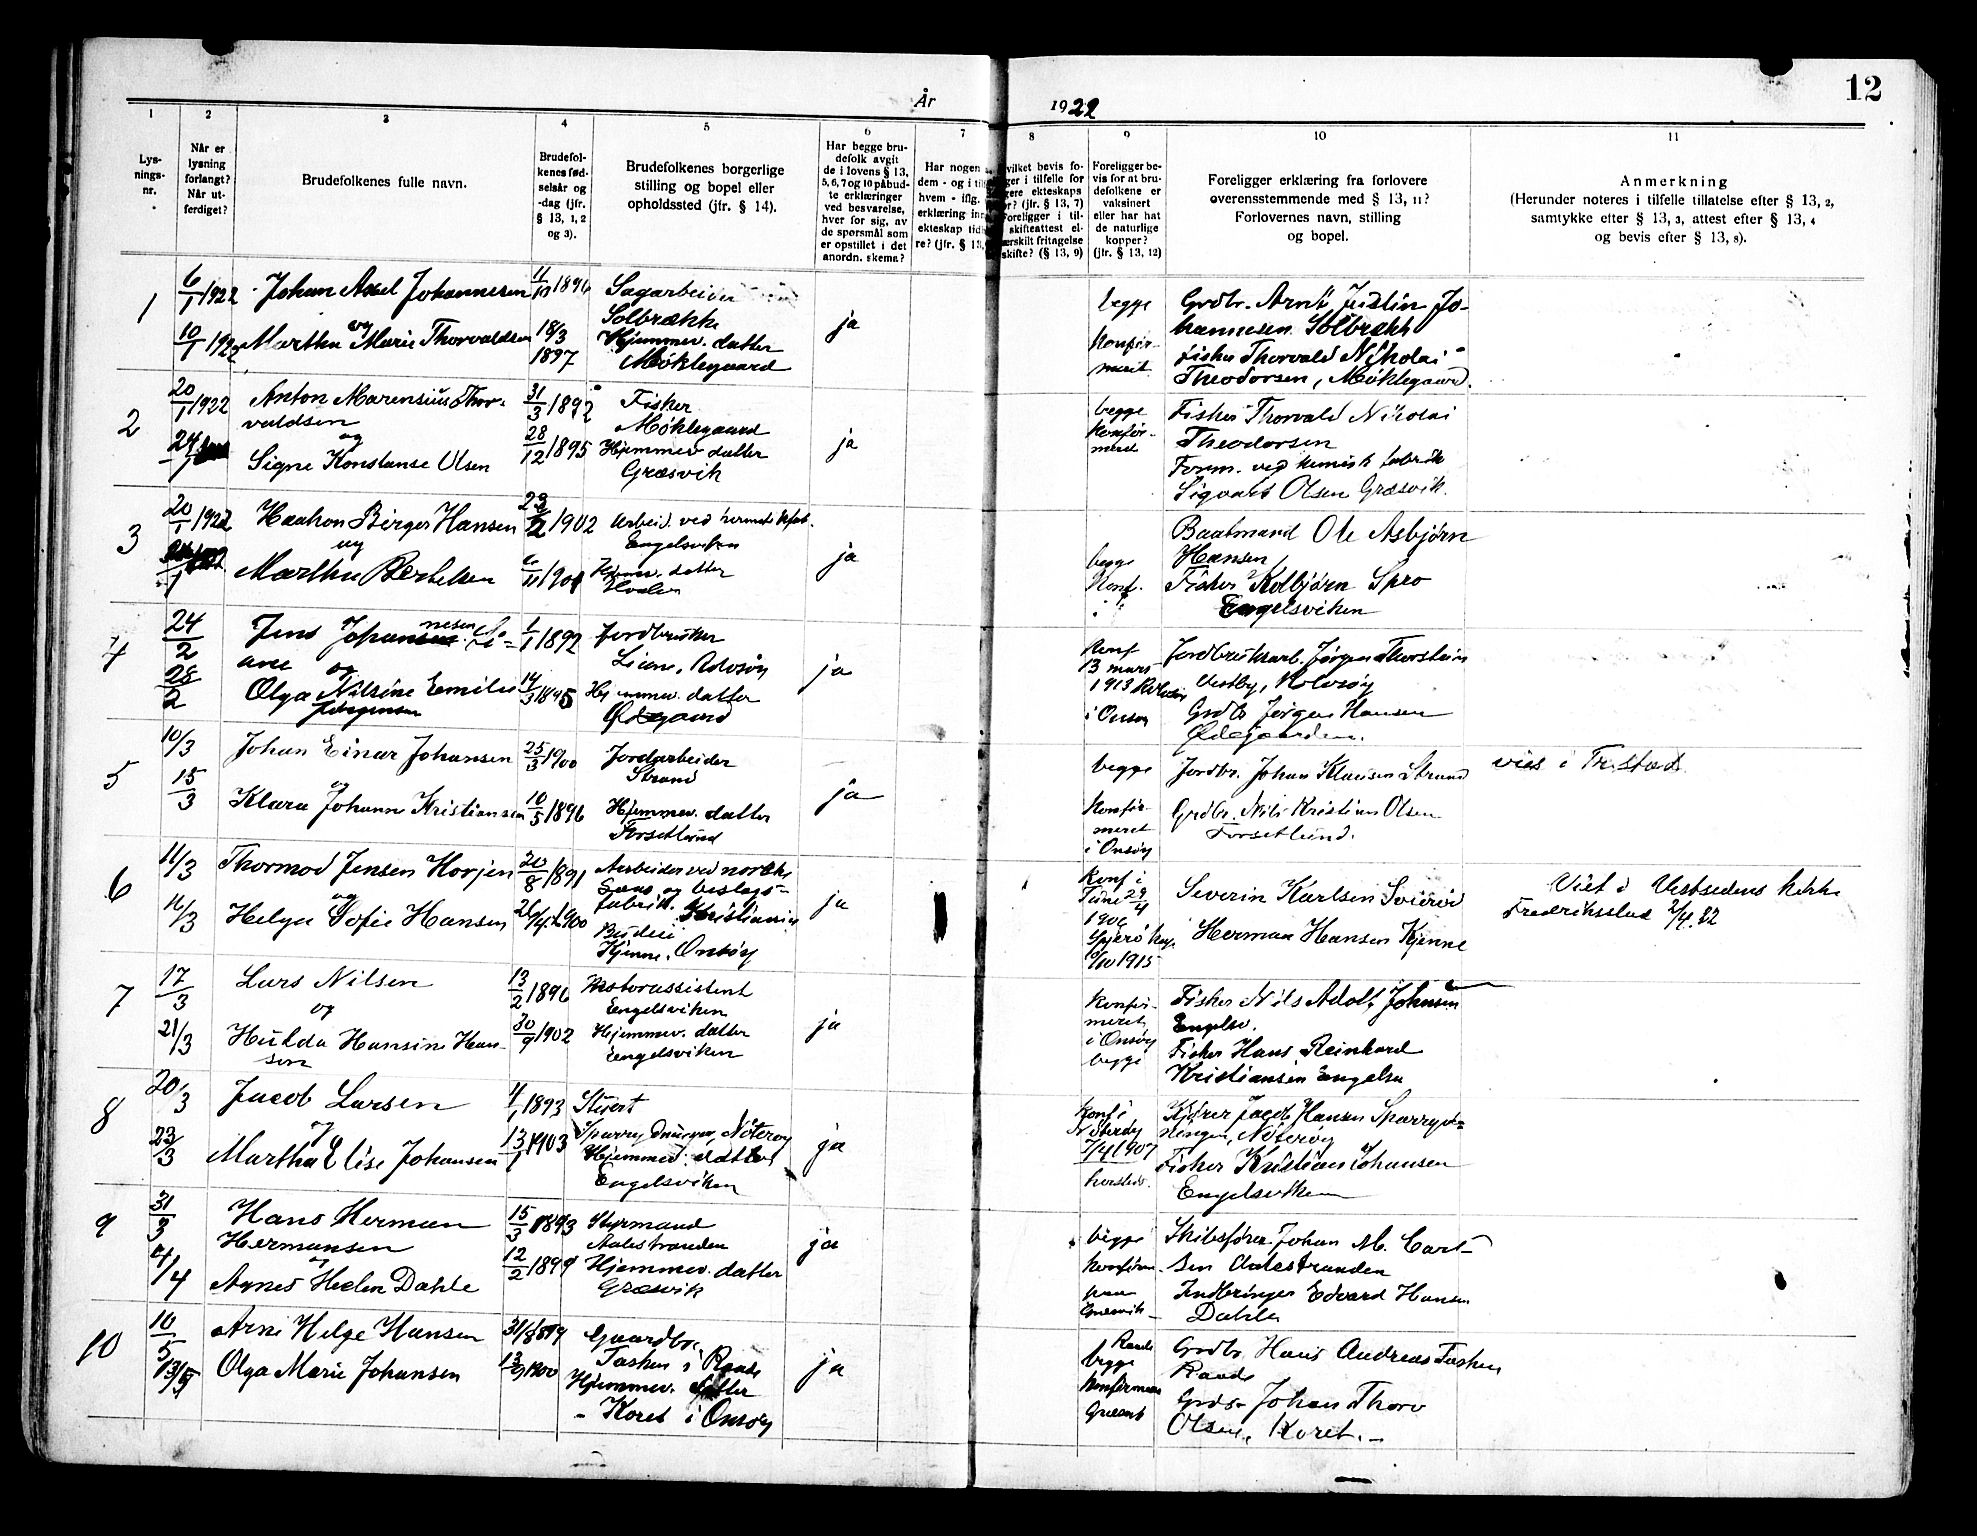 12
År 1922
1 2 3 4 5 6 7 8 9 10 11
Lys-
nings-
nr.
Når er
lysning
forlangt?
Når ut-
ferdiget?
Brudefolkenes fulle navn.
Brudefol-
kenes fød-
selsår og
-dag (jfr.
§ 13, 1, 2
og 3).
Brudefolkenes borgerlige
stilling og bopel eller
opholdssted (jfr. § 14).
Har begge bru-
defolk avgit
de i lovens § 13,
5, 6, 7 og 10 påbud-
te erklæringer
ved besvarelse,
hver for sig, av
de spørsmål som
er opstillet i det
anordn. skema?
Har nogen
dem - og i til
hvem - iflg.
erklæring inn
ekteskap tid
re? (jfr. § 13,
vilket bevis fo-
ger i tilfelle for
gere ekteskaps
or? (jfr. § 13, 7)
Foreligger i til-
skifteattest el-
ærskilt fritagelse
skifte? (§ 13, 9)
Foreligger be-
vis for at bru-
defolkene er
vaksinert
eller har hat
de naturlige
kopper?
(jfr. § 13, 12)
Foreligger erklæring fra forlovere
overensstemmende med § 13, 11?
Forlovernes navn, stilling
og bopel.
Anmerkning
(Herunder noteres i tilfelle tillatelse efter § 13, 2,
samtykke efter § 13, 3, attest efter § 13, 4
og bevis efter § 13, 8).
1
6/1 1922
10/1 1922
Johan Axel Johannesen
og
Martha Marie Thorvaldsen
11/10 1896
18/3
1897
Sagarbeider
Solbrække
Hjemmev. datter
Møklegaard
ja
begge
Konfir-
meret
Grdbr. Arnt Justin Jo-
hannesen Solbrække
Fisker Thorvald Nikolai
Theodorsen, Møklegaard.
2
20/1 1922
24/1
Anton Marensius Thor-
valdsen
og
Signe Konstanse Olsen
31/3 1892
28/12 1895
Fisker
Møklegaard
Hjemmev. datter
Græsvik
ja
begge
Konfir-
meret
Fisker Thorvald Nikolai
Theodorsen
Form. ved kemisk fabrik
Sigvart Olsen Græsvik.
3
20/1 1922
Haakon Birger Hansen
og
Martha Bertelsen
1902
Arbeid. ved hermetikfab.
Engelsviken
Hjemmev. datter
Hvaler
ja
begge
Konf.
i
Baatmand Ole Asbjørn
Hansen
Fisker Kolbjørn Spro
Engelsviken
4
24/2
28/2
Jens Johannesen Li-
ane og
Olga Nilsine Emilie
Jørgensen
1/1 1892
14/3
Jordbruker
Liane, Rolvsøy
Hjemmev. datter
Ødegaard
ja
Konf
13 mars
1913 Rolvsøy
i Onsøy
Jordbruksarb. Jørgen Thorstein
Vestby, Rolvsøy
Grdbr Jørgen Hansen
Ødegaarden.
5
10/3
15/3
Johan Einar Johansen
og
Klara Johanne Kristiansen
25/3 1900
10/5 1896
Jordarbeider
Strand
Hjemmev. datter
Forsetlund
ja
begge
Konfir-
meret
i Onsøy
Jordbr. Johan Klausen Strand
Grdbr. Nils Kristian Olsen
Forsetlund.
vies i Fr.stad.
6
11/3
16/3
Thormod Jensen Horjen
og
Helga Sofie Hansen
20/8 1891
1900
Arbeider ved norske
og beslags-
fabrik. Kristiania
Budeie
Kjenne, Onsøy
ja
Konf i
Tune 29/4
1906
Spjærø kap.
1915
Severin Karlsen
Herman Hansen Kjenne
Viet i Vestsidens kirke
Fredriksstad 2/4.22
7
17/3
21/3
Lars Nilsen
og
Hulda Hansine Han-
sen
13/2 1896
30/9 1902
Motorassistent
Engelsviken
Hjemmev. datter
Engelsviken
ja
Konfir-
meret
i Onsøy
begge
Fisker Nils Adolf Johnsen
Engelsv.
Fisker Hans Reinhard
Kristiansen Engelsv
8
20/3
23/3
Jacob Larsen
og
Martha Elise Johansen
1/1 1893
13/1 1903
Stuert
Nøterøy
Hjemmev. datter
Engelsviken
ja
Konf i
Nøterøy
7/4 1907
Kjører Jacob Hansen
Nøterøy
Fisker Kristian Johansen
Engelsviken
9
31/3
4/4
Hans Herman
Hermansen
og
Agnes Helen Dahle
15/3 1893
12/2 1899
Styrmand
Aalestranden
Hjemmev. datter
Græsvik
ja
begge
Konfirm.
paa
Græsvik
Skibsfører Johan M. Carl-
sen Aalestranden
Indbringer Edvard Hansen
Dahle
10
10/5
13/5
Arne Helge Hansen
Olga Marie Johansen
1900
Gaardbr.
Tasken i Raade
Hjemmev. datter
Koret i Onsøy
ja
Raade
begge
Konfirmeret
Grdbr. Hans Andreas Tasken
Raade
Grdbr Johan Thorv
Olsen, Koret.